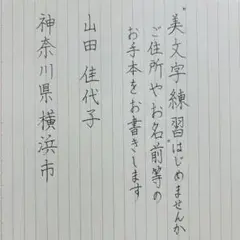 美文字練習はじめませんか
ご住所やお名前等の
お手本をお書きします
山田 佳代子
神奈川県横浜市